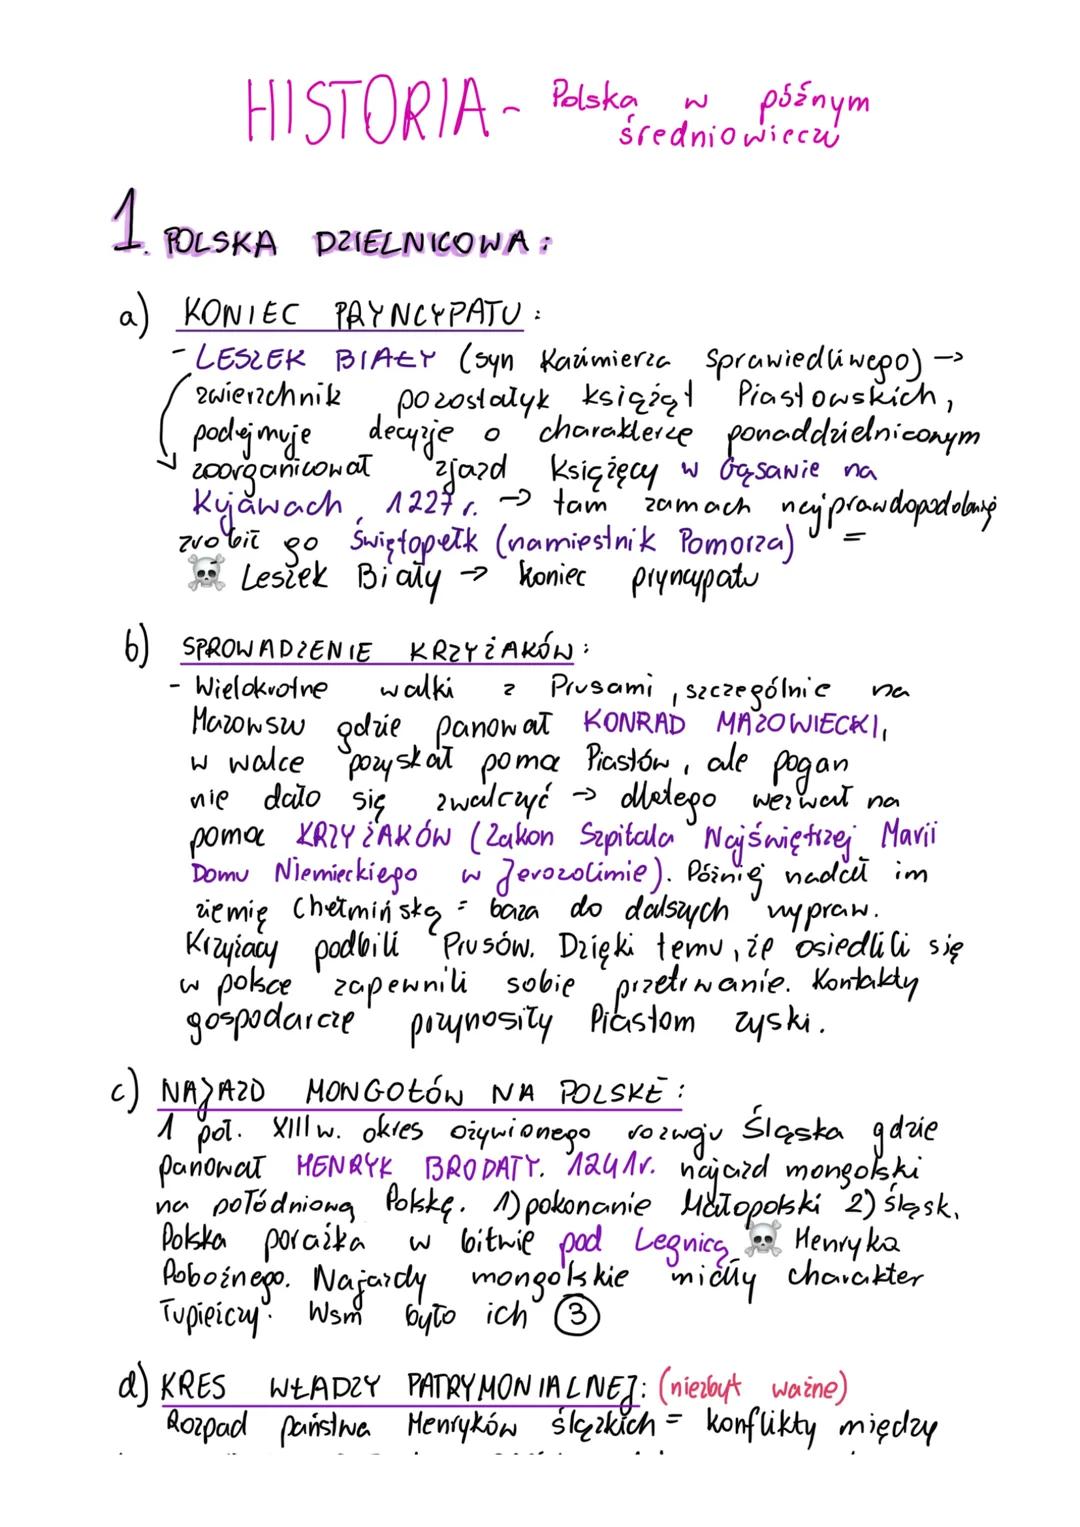 HISTORIA - Polska w późnym
średniowieczu
1. POLSKA DZIELNICOWA:
a) KONIEC PRYNCYPATU:
- LESZEK BIAŁY (syn Kazimierza Sprawiedliwego) →
zwierzchnik pozostałyk książąt Piastowskich,
podejmuje decyzje o charakterze ponaddzielniconym
zoorganicował zjazd Książęcy w Gąsawie na
Kujawach 1227 r. → tam zamach najprawdopodobniej
zrobił go Świętopełk (namiestnik Pomorza) =
☠️ Leszek Biały → koniec pryncypatu
b) SPROWADZENIE KRZYŻAKÓW:
- Wielokrotne walki z Prusami, szczególnie na
Mazowszu gdzie panował KONRAD MAZOWIECKI,
w walce pozyskał pomoc Piastów, ale pogan
nie dało się zwalczyć → dlatego wezwał na
pomoc KRZYŻAKÓW (Zakon Szpitala Najświętrzej Marii
Domu Niemieckiego w Jerozolimie). Później nadał im
ziemię Chełmińską = baza do dalszych wypraw.
Krzyżacy podbili Prusów. Dzięki temu, że osiedlili się
w polsce zapewnili sobie przetrwanie. Kontakty
gospodarcze przynosiły Piastom zyski.
c) NAJAZD MONGOŁÓW NA POLSKĘ:
1 poł. XIII w. okres ożywionego rozwoju Śląska gdzie
panował HENRYK BRODATY. 1241r. najazd mongolski
na połódniową Polskę. 1) pokonanie Małopolski 2) śląsk.
Polska porażka w bitwie pod Legnicą ☠️ Henryka
Pobożnego. Najazdy mongolskie miały charakter
Łupieżczy. Wsm było ich 3
d) KRES WŁADZY PATRYMONIALNEJ: (niezbyt ważne)
Rozpad państwa Henryków ślązkich = konflikty między